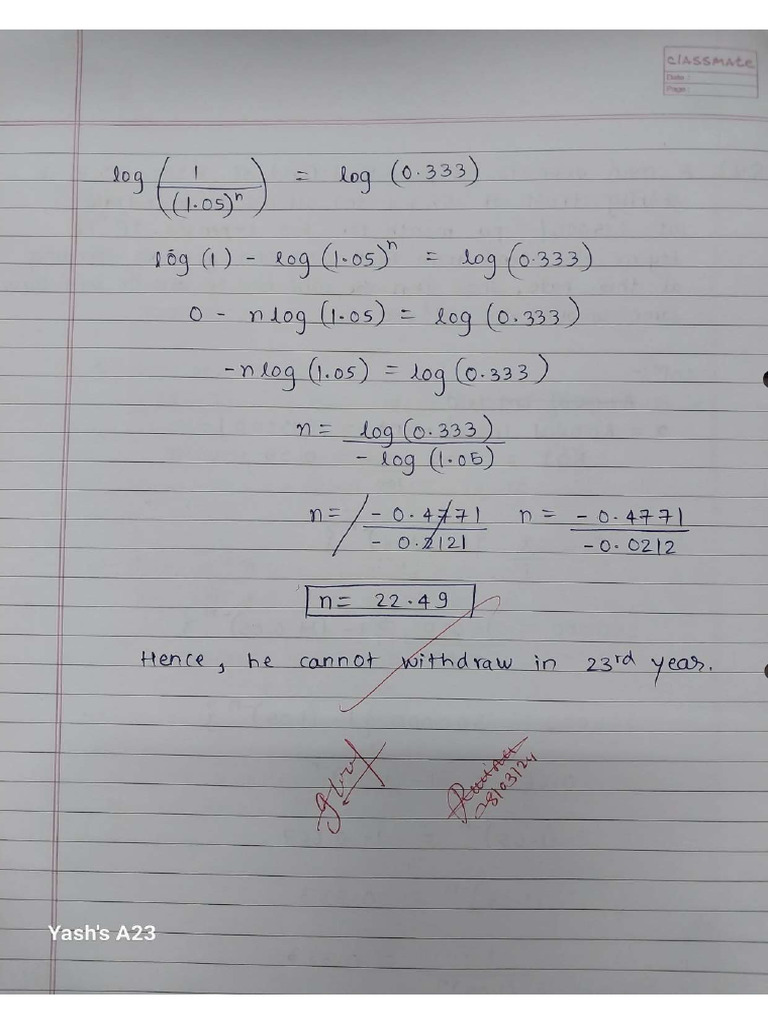 classmate
Date :
Page :
log (1/(1.05)^n) = log (0.333)
log (1) - log (1.05)^n = log (0.333)
0 - n log (1.05) = log (0.333)
-n log (1.05) = log (0.333)
n = log (0.333) / - log (1.05)
n = - 0.4771 / - 0.2121 n = - 0.4771 / - 0.0212
n = 22.49
Hence, he cannot withdraw in 23rd year.
08/03/24
Yash's A23